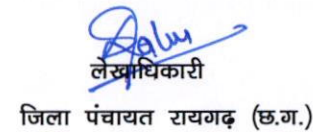 लेखाधिकारी
जिला पंचायत रायगढ़ (छ.ग.)